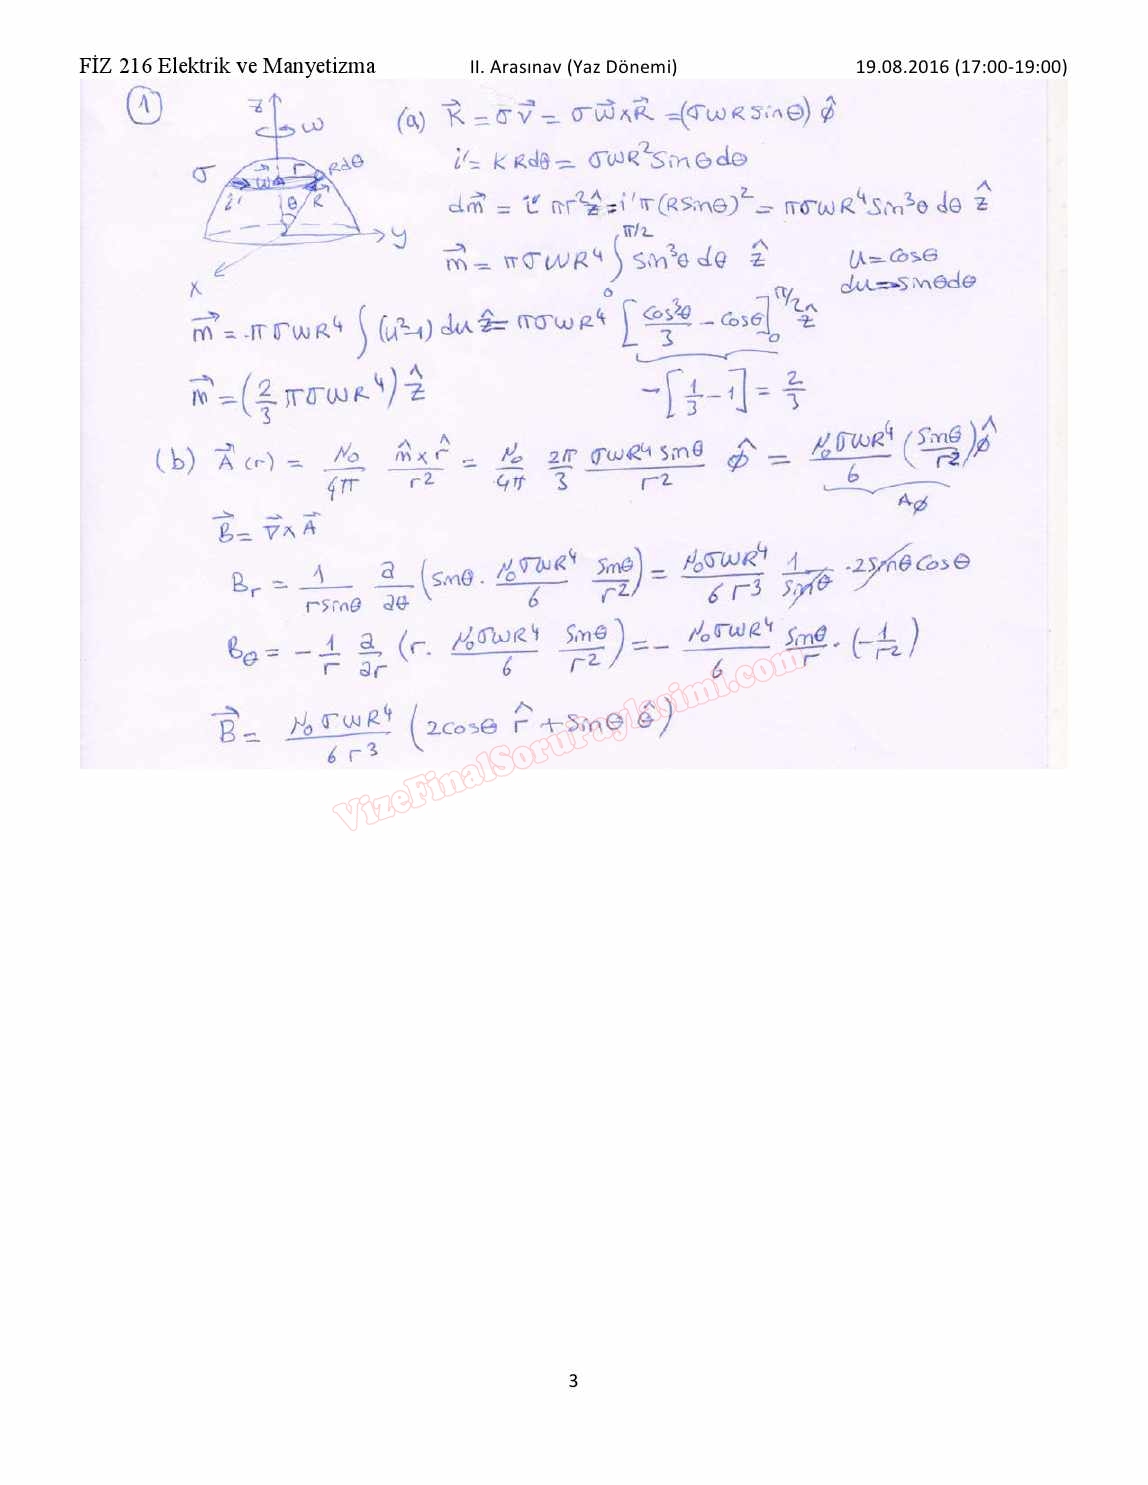 FİZ 216 Elektrik ve Manyetizma II. Arasınav (Yaz Dönemi) 19.08.2016 (17:00-19:00)
① z ω (a) K⃗ = σv⃗ = σ ω⃗ x R⃗ = (σωR sinθ) φ̂
σ r Rdθ i' = K Rdθ = σωR² sinθ dθ
i' θ R dm⃗ = i' πr² ẑ = i' π(R sinθ)² = πσωR⁴ sin³θ dθ ẑ
y m⃗ = πσωR⁴ ∫₀^{π/2} sin³θ dθ ẑ u = cosθ
x du = -sinθdθ
m⃗ = -πσωR⁴ ∫ (u²-1) du ẑ = πσωR⁴ [cos³θ/3 - cosθ]₀^{π/2} ẑ
m⃗ = (2/3 πσωR⁴) ẑ -[1/3 - 1] = 2/3
(b) A⃗(r) = μ₀/4π m̂ x r̂/r² = μ₀/4π 2π/3 σωR⁴ sinθ/r² φ̂ = μ₀σωR⁴/6 (sinθ/r²) φ̂
Aφ
B⃗ = ∇⃗ x A⃗
Br = 1/(r sinθ) ∂/∂θ (sinθ · μ₀σωR⁴/6 sinθ/r²) = μ₀σωR⁴/(6 r³) 1/sinθ · 2 sinθ cosθ
Bθ = - 1/r ∂/∂r (r · μ₀σωR⁴/6 sinθ/r²) = - μ₀σωR⁴/6 sinθ/r · (-1/r²)
B⃗ = μ₀σωR⁴/(6 r³) (2cosθ r̂ + sinθ θ̂)
VizeFinalSoruPaylasimi.com
3